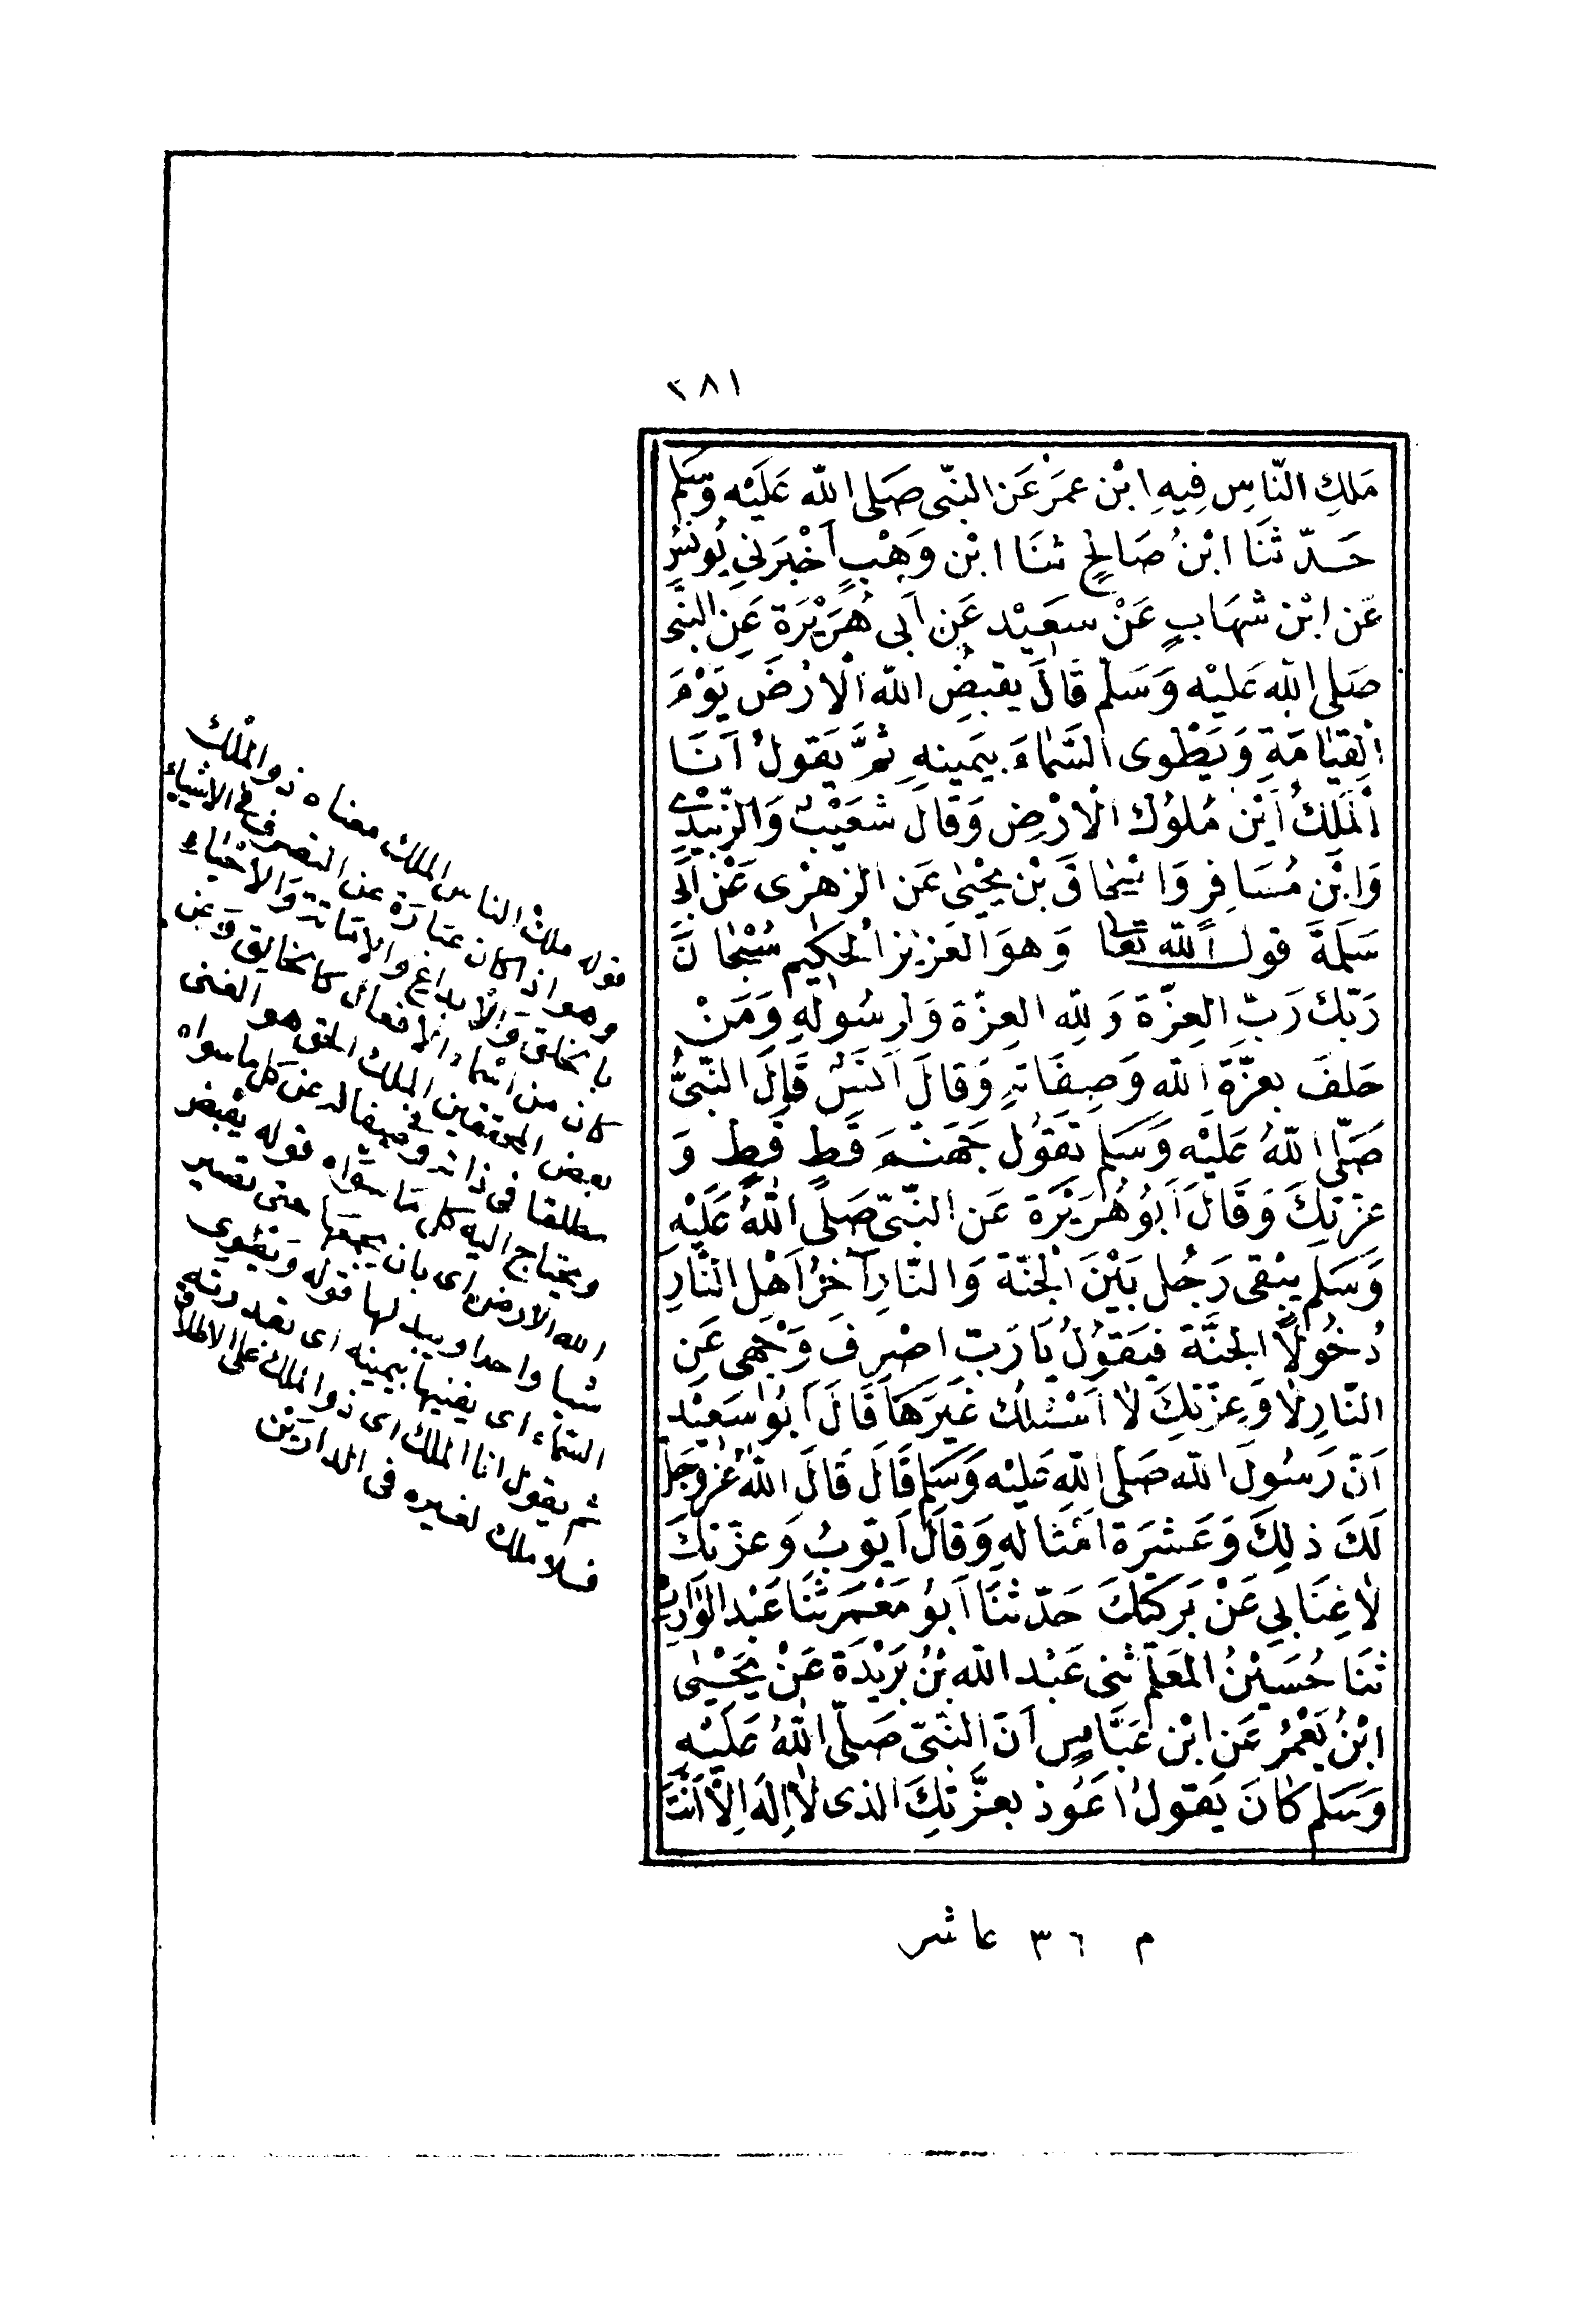 ٢٨١
مَلِكِ النَّاسِ فِيهِ ابْنِ عُمَرَ عَنِ النَّبِيِّ صَلَى اللّٰه عَلَيْهِ وَسَلم
حَدّثنَا ابْنُ صَالحٍ ثنَا ابْن وَهْبٍ أَخْبَرَنِي يُونسُ
عَن ابْن شهَابٍ عَنْ سَعِيْد عَن اَبى هُرَيْرَة عَن النَّبِّى
صَلى اللّٰه عَليْه وَسَلّم قَالَ يقبِضُ اللّٰه الْارْضَ يَوْمَ
الْقِيَامَةِ وَيَطْوِى السَّمَاءَ بِيَمِينِهِ ثُمَّ يَقولُ اَنَا
الْمَلِكُ اَيْنَ مُلوُك الْارْضِ وَقالَ شعَيْبٌ وَالزّبَيْدِيْ
وَابْن مُسَافِرٍ وَاسْحَاق بْن يَحْيىٰ عَن الزهْرى عَنْ اَبى
سَلمَةَ قول اللّٰه تعا وَهوَ العَزيز الحَكِيم سُبْحَانَ
رَبّكَ رَبّ العِزّة وَللّه العِزّة وَلرسُولهِ وَمَنْ
حَلفَ بعزّةِ اللّٰه وَصِفَاتهِ وَقالَ اَنَسٌ قَالَ النَّبِىُّ
صَلّى اللّٰهُ عَليْه وَسَلم تقوُل جَهَنّمَ قَطٍ قَطٍ وَ
عزتكَ وَقَالَ اَبُو هُرَيْرَة عَن النَّبِّى صَلى اللّٰهُ عَلَيْه
وَسَلم يبْقى رَجُل بَيْنَ الْجَنّة وَالنَّارِ آخرُ اَهْلِ النَّارِ
دُخُولًا الجَنَّةَ فيَقوُلُ يَا رَبّ اصْرِفَ وَجْهى عَن
النّارِ لَا وَعِزّتكَ لَا اَسْئلك غيَرَهَا قَالَ اَبُو سَعيْد
اَنّ رَسُولَ اللّٰه صَلى اللّٰه عَليْه وَسَلم قَالَ قَالَ اللّٰهُ عزوَجَل
لَكَ ذلِكَ وَعَشرَة اَمْثالهِ وَقالَ اَيّوبُ وَعزّتكَ
لَا غِنَا بى عَنْ بَركتكَ حَدّثنَا اَبوُ مَعْمَر ثنَا عَبْد الوَارث
ثنَا حُسَيْنُ المعَلّم ثنى عَبْد اللّٰه بْنُ بُرَيْدَة عَنْ يَحْيىٰ
ابْنُ يَعْمُرُ عَن ابْن عَبَّاسٍ اَنّ النَّبِّى صَلّى اللّٰهُ عَلَيْه
وَسَلم كَانَ يَقولُ اَعُوذ بعزَّتكَ الذى لَا اِلهَ اِلَّا اَنْتَ
قوله ملك الناس الملك معناه ذو الملك
وهو اذ اكان عبارة عن التصرف فى الاشياء
بالخلق والابداع والاماتة والاحياء
كان من اسماء الافعال كالخالق وعن
بعض المحققين الملك الحق هو الغنى
مطلقا فى ذاته وفى صفاته عن كل ما سواه
ويحتاج اليه كل ما سواه قوله يقبض
الله الارض اى بان يجمعها حتى تصير
شيا واحدا ويبدلها قوله ويطوى
السماء اى يفنيها بيمينه اى بقدرته
ثم يقول انا الملك اى ذو الملك على الاطلاق
فلا ملك لغيره فى الدارين
م ٣٦ عاشر